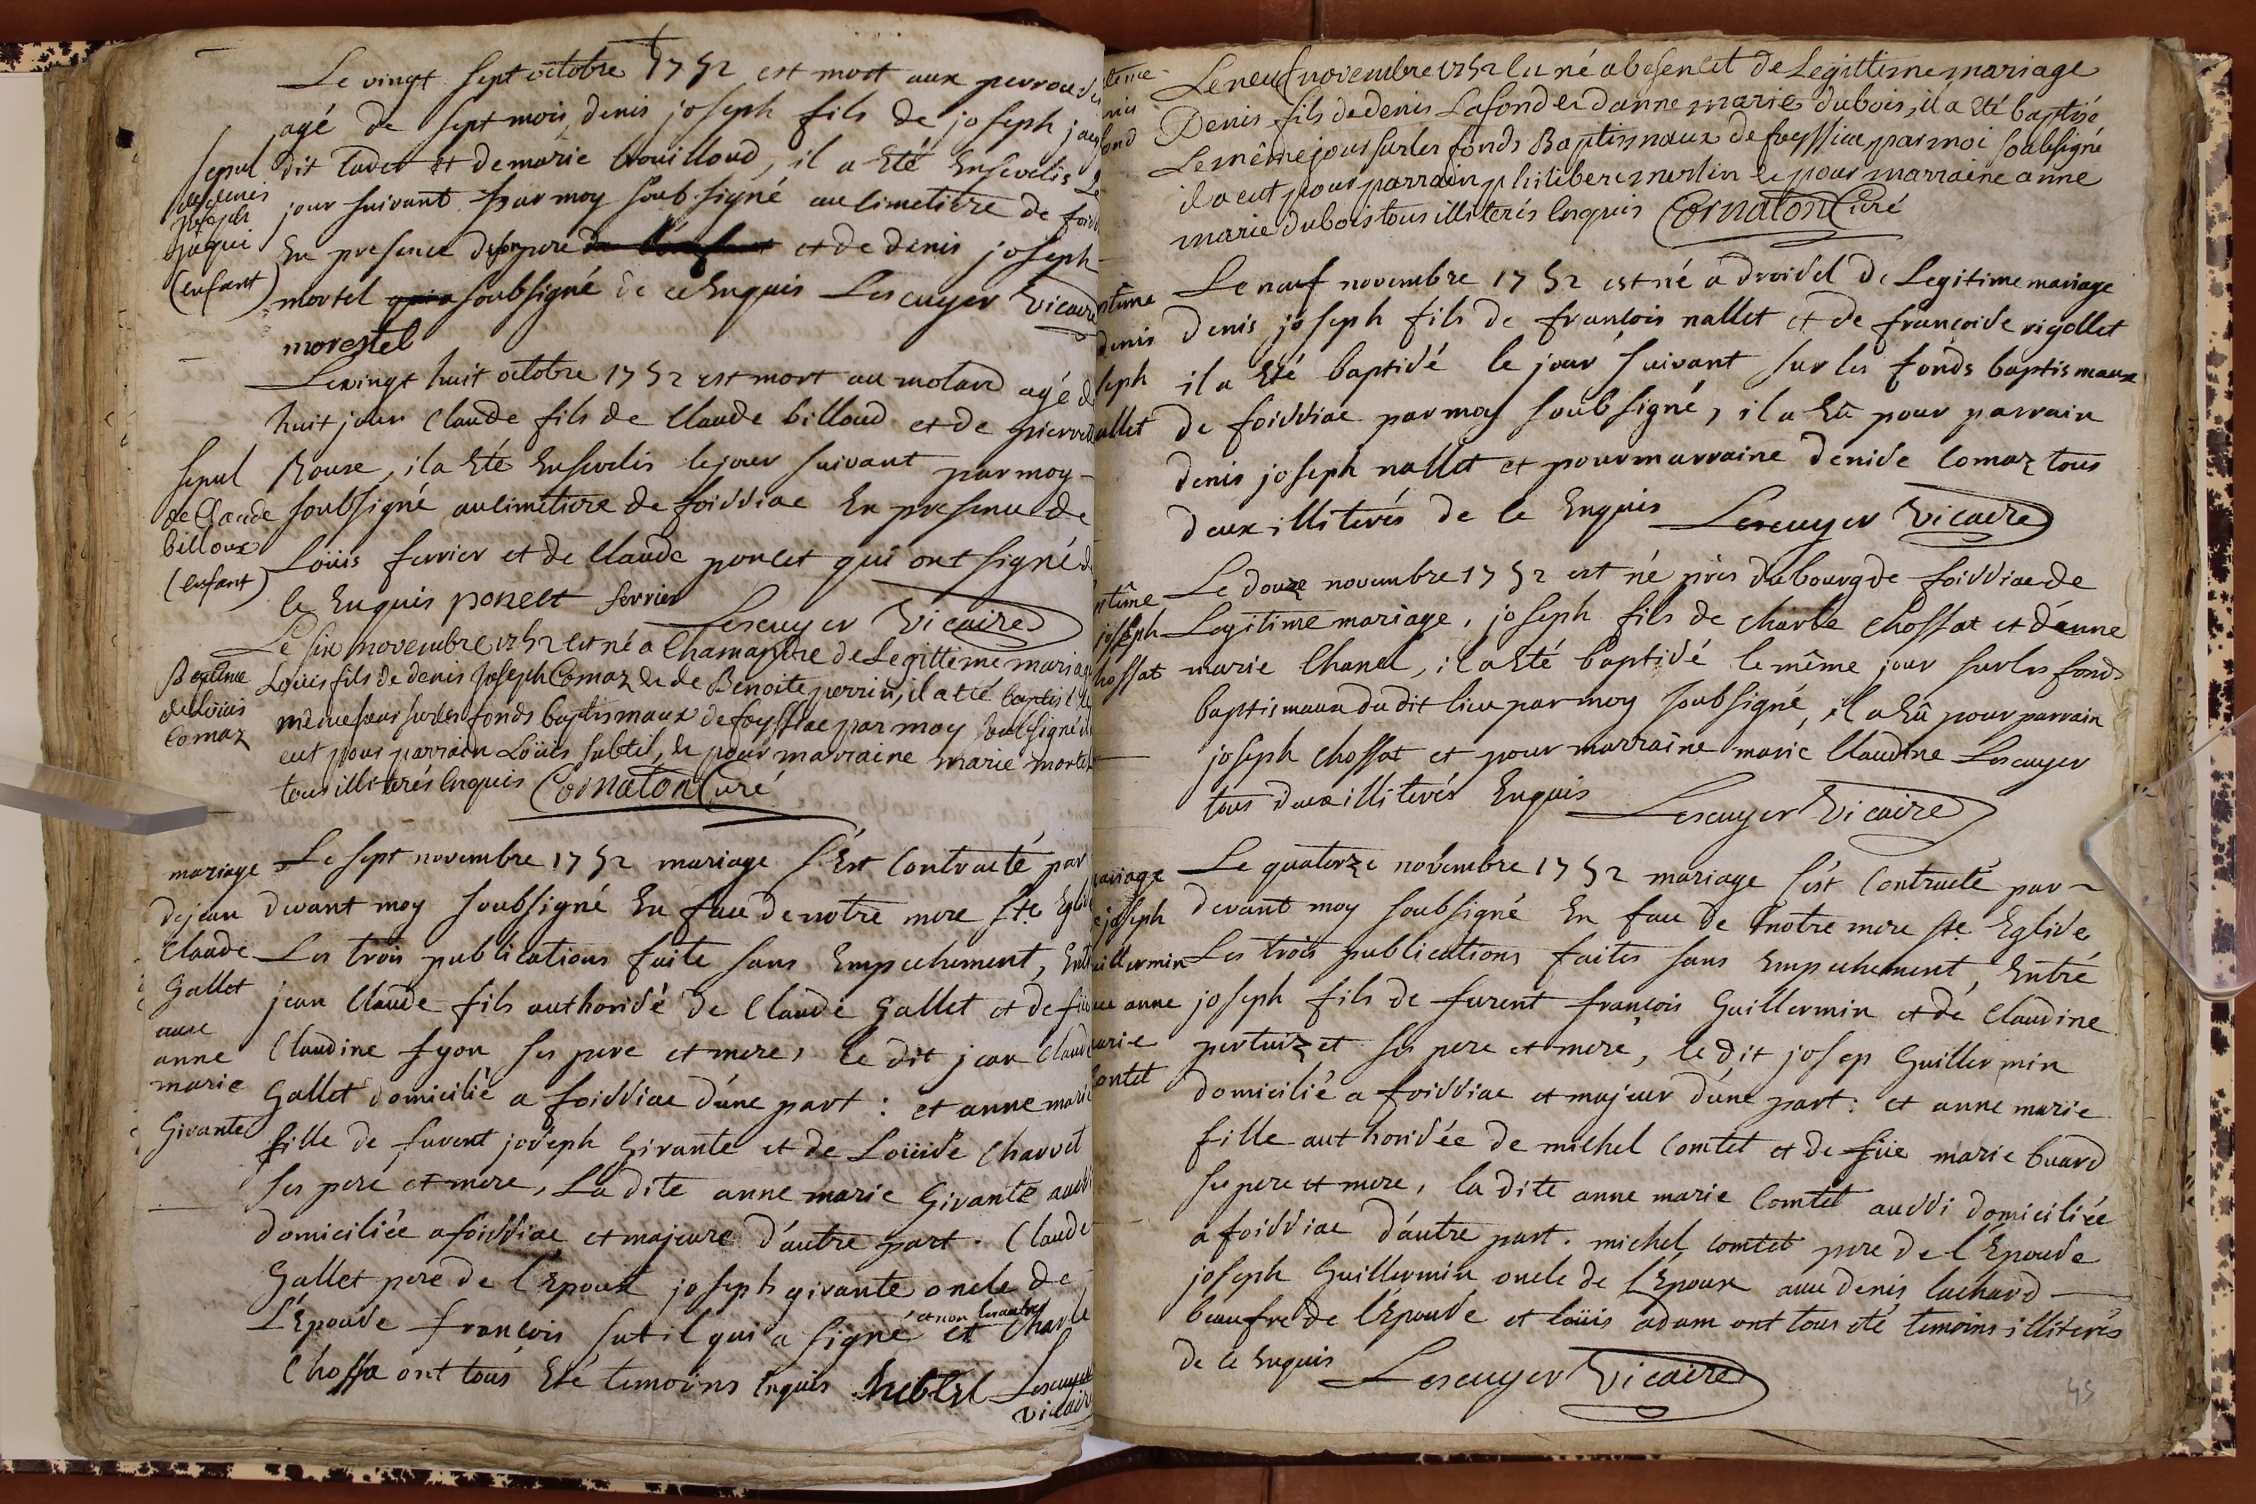 Le vingt sept octobre 1752 est mort aux perroudes
agé de sept mois denis joseph fils de joseph jaqu
dit tavet et de marie brouilloud, il a Eté Ensevelis Le
jour suivant par moy soubsigné au cimetiere de foiss
En presence de son pere de l'enfant et de denis joseph
mortel qui a soubsigné de ce Enquis Lescuyer Vicaire
morestel
sepul
de denis
joseph
jaqui
(enfant)
Le vingt huit octobre 1752 est mort au molard agé de
huit jour Claude fils de Claude billoud et de pierrett
Rouse, il a Eté Ensevelis le jour suivant par moy
soubsigné au cimetiere de foissiac En presence de
Loüis ferrier et de Claude poncet qui ont signé d
ce Enquis poncet ferrier Lescuyer Vicaire
sepul
de Claude
billoux
(enfant)
Le six novembre 1752 est né a Chamandre de Legittime mariage
Loüis fils de denis Joseph Comaz et de Benoite perrin, il a eté baptisé le
même jour sur les fonds baptismaux de foyssiac par moy soubsigné il
eut pour parrain Loüis subtil, et pour marraine marie mortel
tous illiterés Enquis Cornaton Curé
Bapteme
de Loüis
Comaz
Le sept novembre 1752 mariage s'Est Contracté par
devant moy soubsigné En face de notre mere ste Eglise
Les trois publications faite sans Empechement, Entre
jean Claude fils authorisé de Claude Gallet et de füe
Claudine fyon ses pere et mere, le dit jean Claude
Gallet domicilié a foissiac d'une part : et anne marie
fille de furent joseph Girante et de Loüise Charvet
ses pere et mere, La dite anne marie Girante aussi
domiciliée a foissiac et majeure d'autre part. Claude
Gallet pere de l'Epoux joseph girante oncle de
L'Epouse françois subtil qui a signé et non les autres et Charle
Chossa ont tous Eté temoins Enquis Subtil Lescuyer
vicaire
mariage
de jean
Claude
Gallet
avec
anne
marie
Girante
Le neuf novembre 1752 est né a besencet de Legittime mariage
Denis fils de denis Lafond et d'anne marie dubois, il a eté baptisé
Le même jour sur les fonds Baptismaux de foyssiac, par moi soubsigné
il a eut pour parrain philibert merlin et pour marraine anne
marie dubois tous illiterés Enquis Cornaton Curé
teme
nis
fond
Le neuf novembre 1752 est né a droisel de Legitime mariage
denis joseph fils de françois nallet et de françoise rigollet
il a Eté baptisé le jour suivant sur les fonds baptismaux
de foissiac par moy soubsigné, il a Eû pour parrain
denis joseph nallet et pour marraine denise Comaz tous
deux illiterés de ce Enquis Lescuyer Vicaire
ptême
denis
seph
allet
Le douze novembre 1752 est né près du bourg de foissiac de
Legitime mariage, joseph fils de Charle Chossat et d'anne
marie Chanel, il a Eté baptisé le même jour sur les fonds
baptismaux du dit lieu par moy soubsigné, il a Eû pour parrain
joseph Chossat et pour marraine marie Claudine Lescuyer
tous deux illiterés Enquis Lescuyer Vicaire
ptême
joseph
hossat
Le quatorze novembre 1752 mariage s'est Contracté par
devant moy soubsigné En face de notre mere ste Eglise
Les trois publications faites sans Empechement, Entre
joseph fils de furent françois Guillermin et de Claudine
pertuizet ses pere et mere, le dit josep Guillermin
domicilié a foissiac et majeur d'une part : et anne marie
fille authorisée de michel Comtet et de füe marie buard
ses pere et mere, la dite anne marie Comtet aussi domiciliée
a foissiac d'autre part. michel Comtet pere de l'Epouse
joseph Guillermin oncle de l'Epoux avec denis luchard
beaufre de l'Epouse et loüis adam ont tous eté temoins illiterés
de ce Enquis Lescuyer Vicaire
ariage
e joseph
uillermin
vec anne
arie
ontet
45